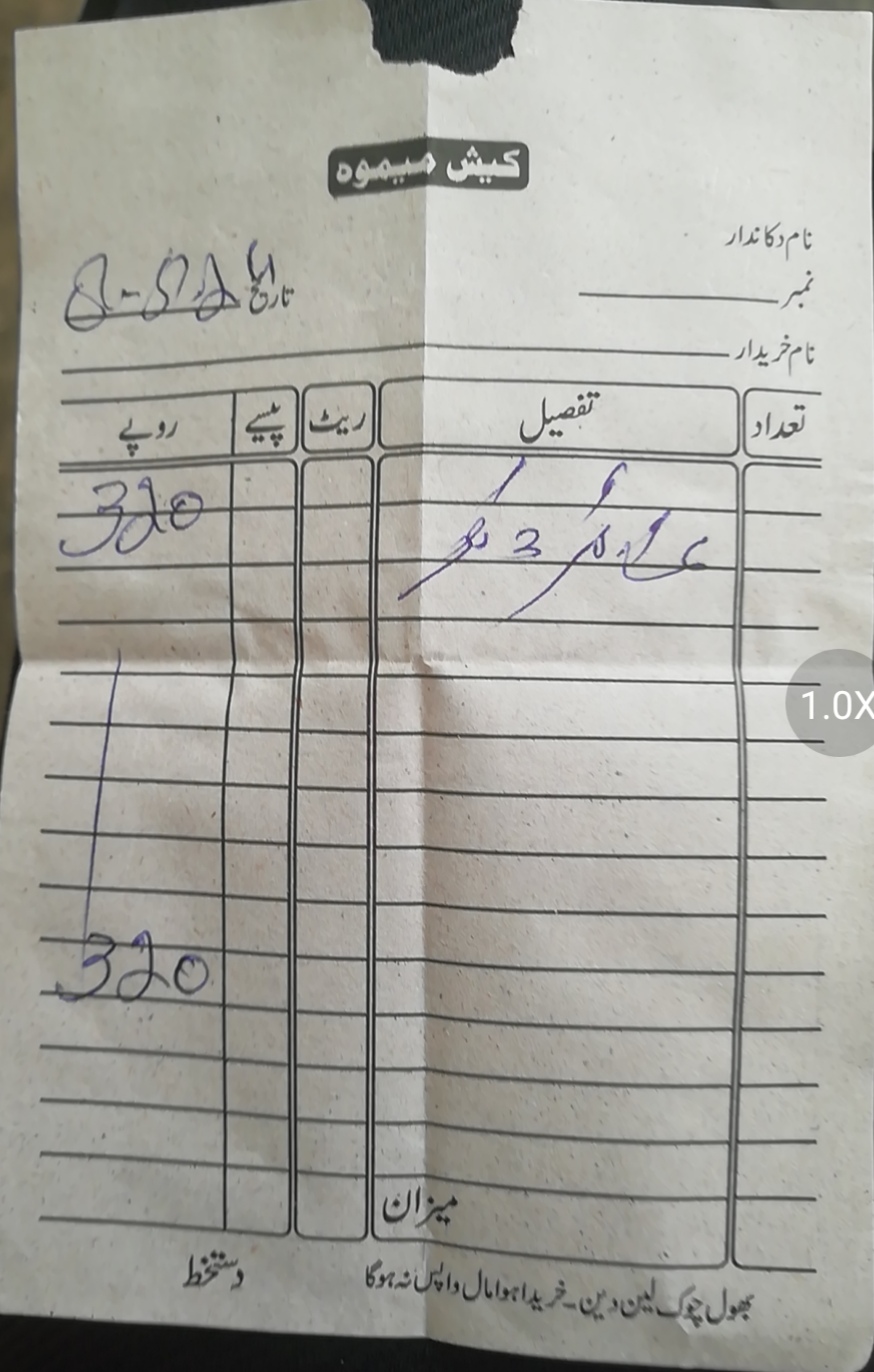 کیش میموہ
نام دکاندار
نمبر
تاریخ
نام خریدار
تعداد تفصیل ریٹ پیسے روپے
320
3
320
میزان
بھول چوک لین دین۔ خریدا ہوا مال واپس نہ ہوگا
دستخط
1.0X